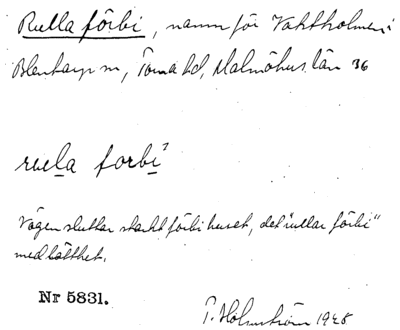 Rulla förbi, namn för Vaktholmen i
Blentarp sn, Torna hd, Malmöhus län 36
ruela forbi
Vägen sluttar starkt förbi huset, det "rullar förbi"
med lätthet.
Nr 5831.
P. Holmström 1925